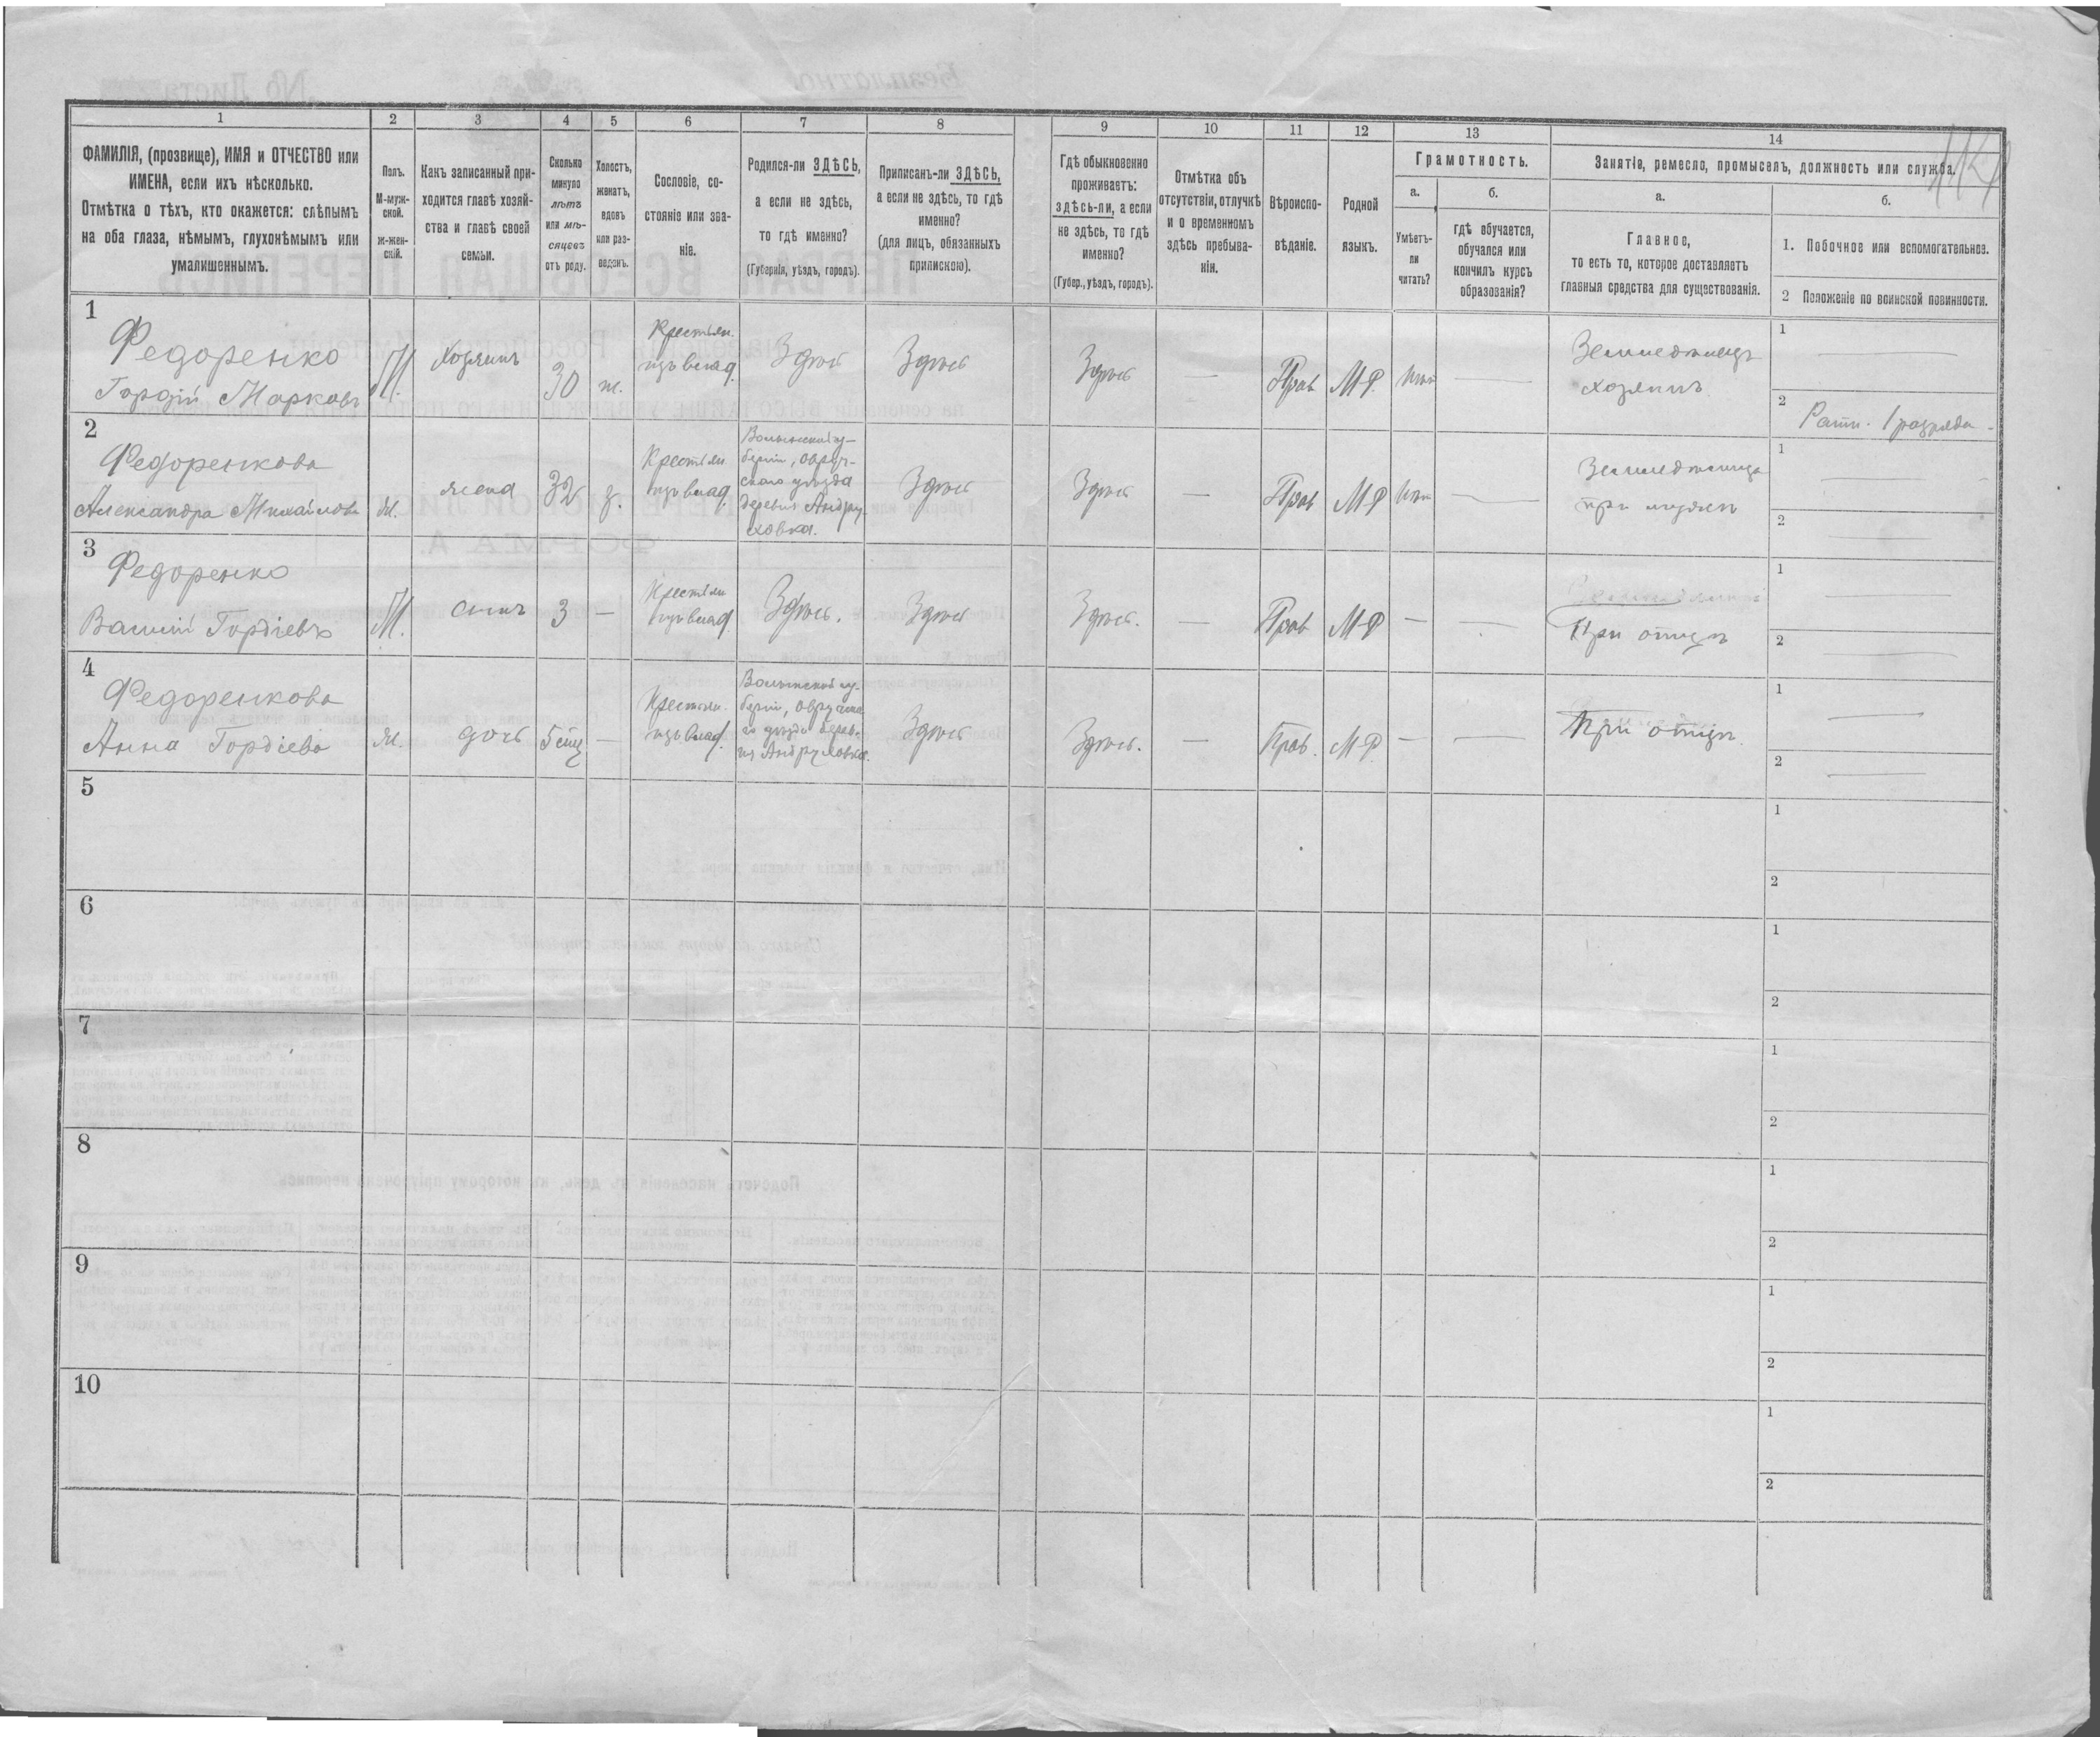 1
2
3
4
5
6
7
8
9
10
11
12
13
14
ФАМИЛІЯ, (прозвище), ИМЯ и ОТЧЕСТВО или
ИМЕНА, если ихъ нѣсколько.
Отмѣтка о тѣхъ, кто окажется: слѣпымъ
на оба глаза, нѣмымъ, глухонѣмымъ или
умалишеннымъ.
Полъ.
М-муж-
ской.
ж-жен-
скій.
Какъ записанный при-
ходится главѣ хозяй-
ства и главѣ своей
семьи.
Сколько
минуло
лѣтъ
или мѣ-
сяцевъ
отъ роду.
Холостъ,
женатъ,
вдовъ
или раз-
веденъ.
Сословіе, со-
стояніе или зва-
ніе.
Родился-ли ЗДѢСЬ,
а если не здѣсь,
то гдѣ именно?
(Губернія, уѣздъ, городъ).
Приписанъ-ли ЗДѢСЬ,
а если не здѣсь, то гдѣ
именно?
(для лицъ, обязанныхъ
припискою).
Гдѣ обыкновенно
проживаетъ:
здѣсь-ли, а если
не здѣсь, то гдѣ
именно?
(Губер., уѣздъ, городъ).
Отмѣтка объ
отсутствіи, отлучкѣ
и о временномъ
здѣсь пребыва-
ніи.
Вѣроиспо-
вѣданіе.
Родной
языкъ.
Грамотность.
а.
б.
Умѣетъ-
ли
читать?
гдѣ обучается,
обучался или
кончилъ курсъ
образованія?
Занятіе, ремесло, промыселъ, должность или служба.
а.
б.
Главное,
то есть то, которое доставляетъ
главныя средства для существованія.
1. Побочное или вспомогательное.
2 Положеніе по воинской повинности.
1
Федоренко
Гордій Марковъ
М.
Хозяинъ
30
ж.
Крестьян.
изъ влад.
Здѣсь
Здѣсь
Здѣсь
—
Прав
МР.
Нѣт
—
Земледѣлецъ
хозяинъ
1 —
2 Ратн. 1 разряда
2
Федоренкова
Александра Михайлова
Ж.
жена
32
з.
Крестьян
изъ влад.
Волынской гу-
берніи, Овруч-
скаго уѣзда
деревня Андру-
ховка.
Здѣсь
Здѣсь
—
Прав
МР
Нѣт
—
Земледѣлица
при мужѣ
1 —
2 —
3
Федоренко
Василій Гордіевъ
М.
сынъ
3
—
Крестьян
изъ влад.
Здѣсь.
Здѣсь
Здѣсь.
—
Прав
МР
—
—
При отцѣ
1 —
2 —
4
Федоренкова
Анна Гордіева
Ж.
дочь
—
Крестьян.
изъ влад.
Волынской гу-
берніи, Овручска-
го уѣзда дерев-
ня Андруховка.
Здѣсь
Здѣсь.
—
Прав.
МР.
—
—
При отцѣ
1 —
2 —
5
1
2
6
1
2
7
1
2
8
1
2
9
1
2
10
1
2